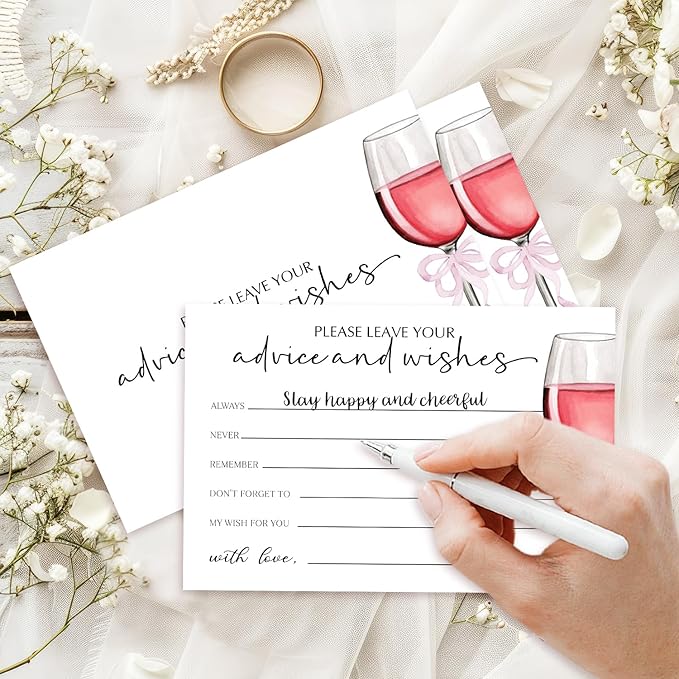 LEAVE YOUR
advice wishes
PLEASE LEAVE YOUR
advice and wishes
ALWAYS Stay happy and cheerful
NEVER
REMEMBER
DON'T FORGET TO
MY WISH FOR YOU
with love,